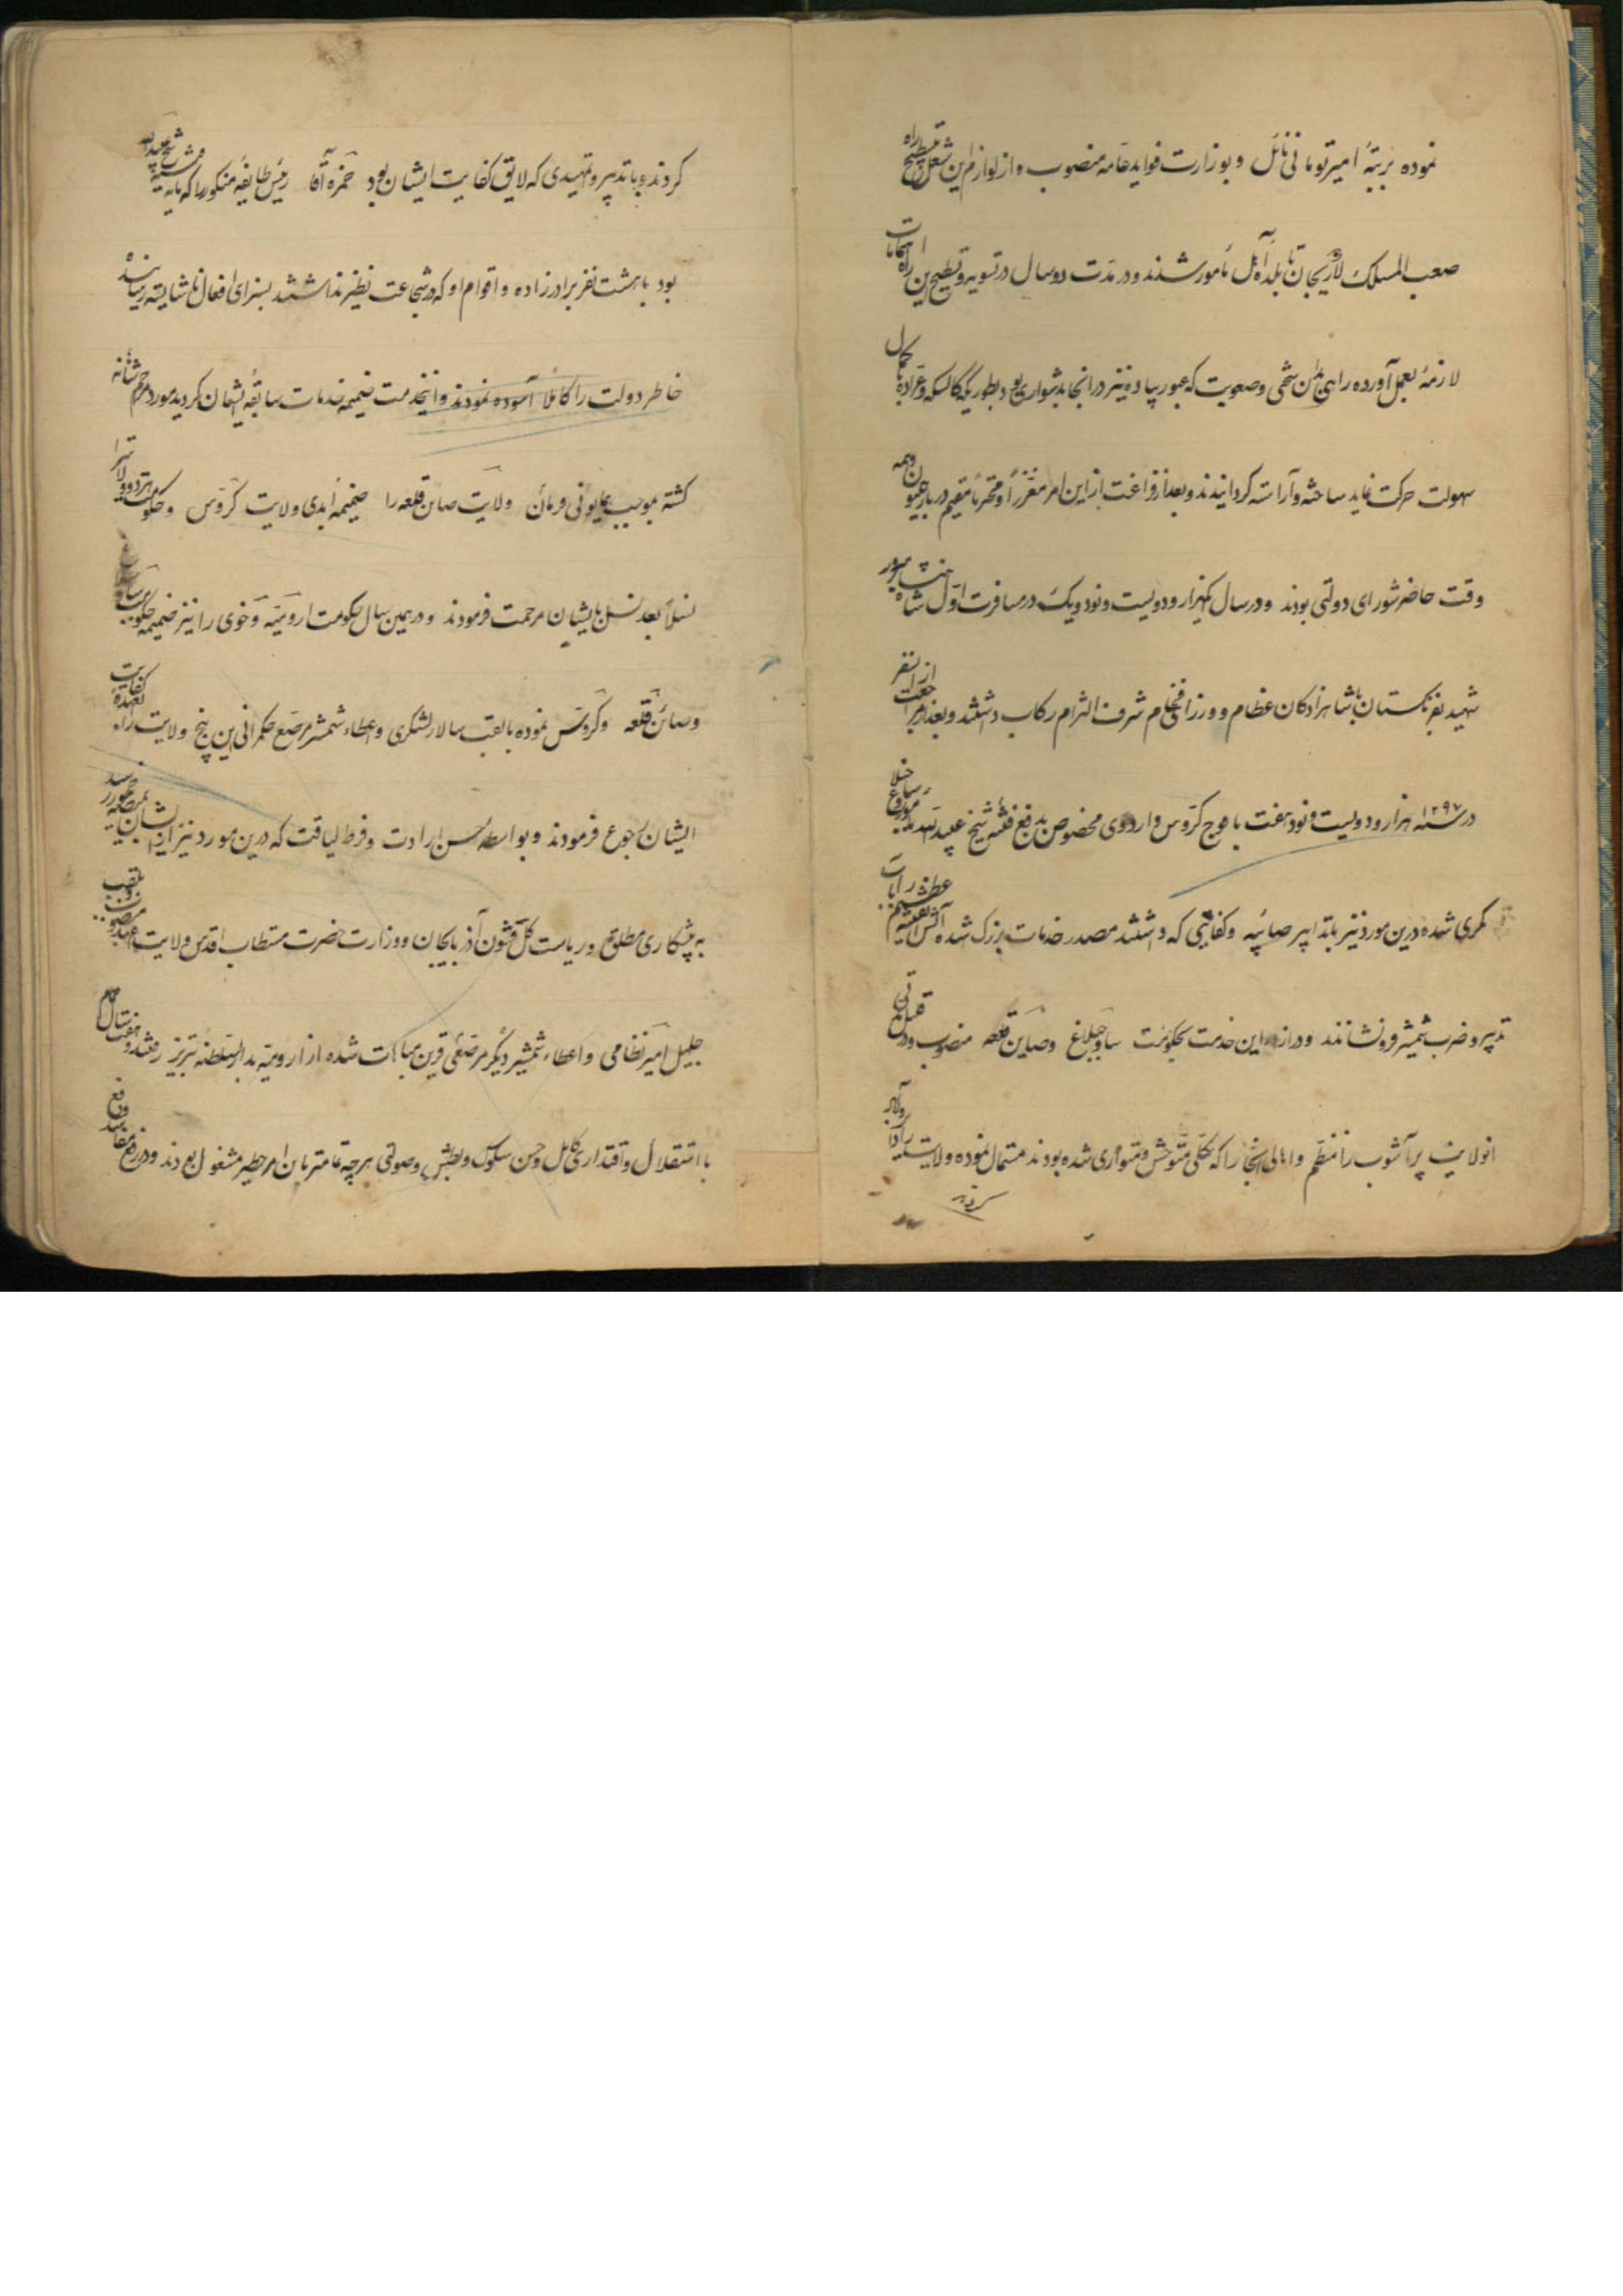 نموده برتبهٔ امیرتومانی نائل و بوزارت فواید عامه منصوب و از لوازم این شغل تسطیح راه
صعب المسلک لاریجان تا بلدهٔ آمل مأمور شدند و در مدت دو سال در تسویه و تسطیح این راه اهتمامات
لازمه بعمل آورده راهی بدان سختی و صعوبت که عبور پیاده نیز در انجا بدشواری بود بطوریکه کالسکه و عراده با کمال
سهولت حرکت نماید ساخته و آراسته کردانیدند و بعد از فراغت از این امر معززاً و محترماً مقیم دربار همیون و همه
وقت حاضر شورای دولتی بودند و در سال یکهزار و دویست و نود و یک در مسافرت اول شاهنشاه مبرور
شهید بفرنکستان با شاهزادکان عظام و وزرای فخام شرف التزام رکاب داشتند و بعد از مراجعت از ان سفر
در سنه ۱۲۹۷ هزار و دویست و نود و هفت با فوج کروس و اردوی مخصوص بدفع فتنه شیخ عبیدالله مأمور ساوجبلاغ
مکری شده درین مورد نیز بتدابیر صائبه و کفایتی که داشتند مصدر خدمات بزرک شده آتش
تدبیر و ضرب شمشیر فرو نشانند و در ازاء این خدمت بحکومت ساوجبلاغ و صاین قلعه منصوب و در قلیل مدتی
انولایت پرآشوب را منظم و اهالی انجا را که بکلی متوحش و متواری شده بودند مستمال نموده ولایت را دایر و آباد
کردند
کردند و با تدبیر و تمهیدی که لایق کفایت ایشان بود حمزه آقا رئیس طایفه منکور را که مایه فتنه شیخ عبیدالله
بود با هشت نفر برادرزاده و اقوام او که در شجاعت نظیر نداشتند بسزای افعال ناشایسته رسانیده
خاطر دولت را کاملاً آسوده نمودند و اینخدمت ضمیمه خدمات سابقهٔ ایشان کردیده مورد مراحم شاهانه
کشته بموجب فرمان همایونی ولایت صاین قلعه را ضمیمه ابدی ولایت کروس و حکومت هر دو ولایت را
نسلاً بعد نسل بایشان مرحمت فرمودند و در همین سال حکومت ارومیه و خوی را نیز ضمیمه حکومت ساوجبلاغ
و صائن قلعه و کروس نموده با لقب سالار لشکری و اعطاء شمشیر مرصع حکمرانی این پنج ولایت را بعهدهٔ کفایت
ایشان رجوع فرمودند و بواسطه حسن ارادت و فرط لیاقت که درین مورد نیز از ایشان بمنصه ظهور رسید
به پیشکاری مطلق و ریاست کل قشون آذربایجان و وزارت حضرت مستطاب اقدس ولایتعهد منصوب و بلقب
جلیل امیرنظامی و اعطاء شمشیر دیکر مرصعی قرین مباهات شده از ارومیه بدارالسلطنه تبریز رفتند و هفت سال تمام
با استقلال و اقتداری کامل و حسن سلوک و بطش و صولتی هرچه تمامتر باین امر خطیر مشغول بودند و در رفع مفاسد و دفع